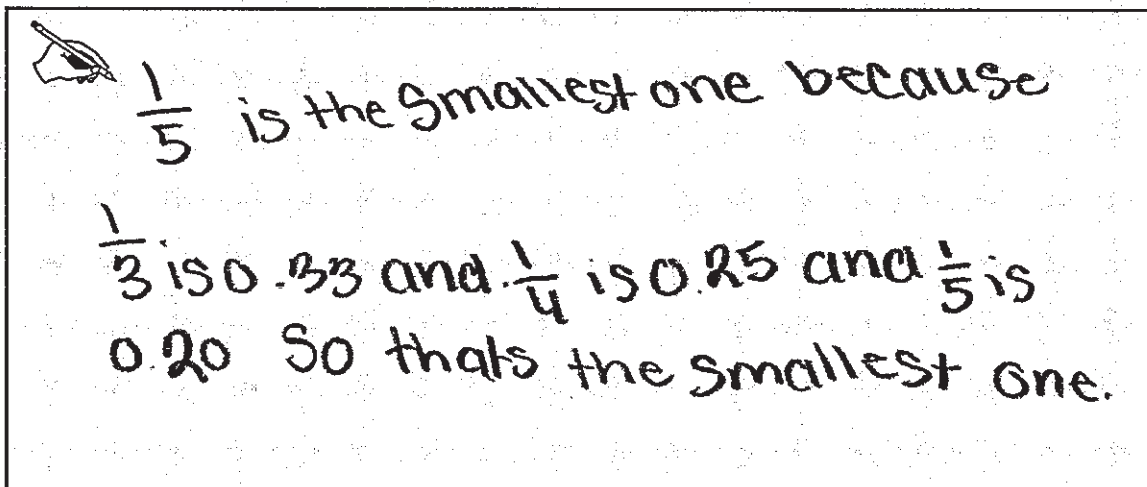 1/5 is the smallest one because
1/3 is 0.33 and 1/4 is 0.25 and 1/5 is
0.20 So thats the smallest one.